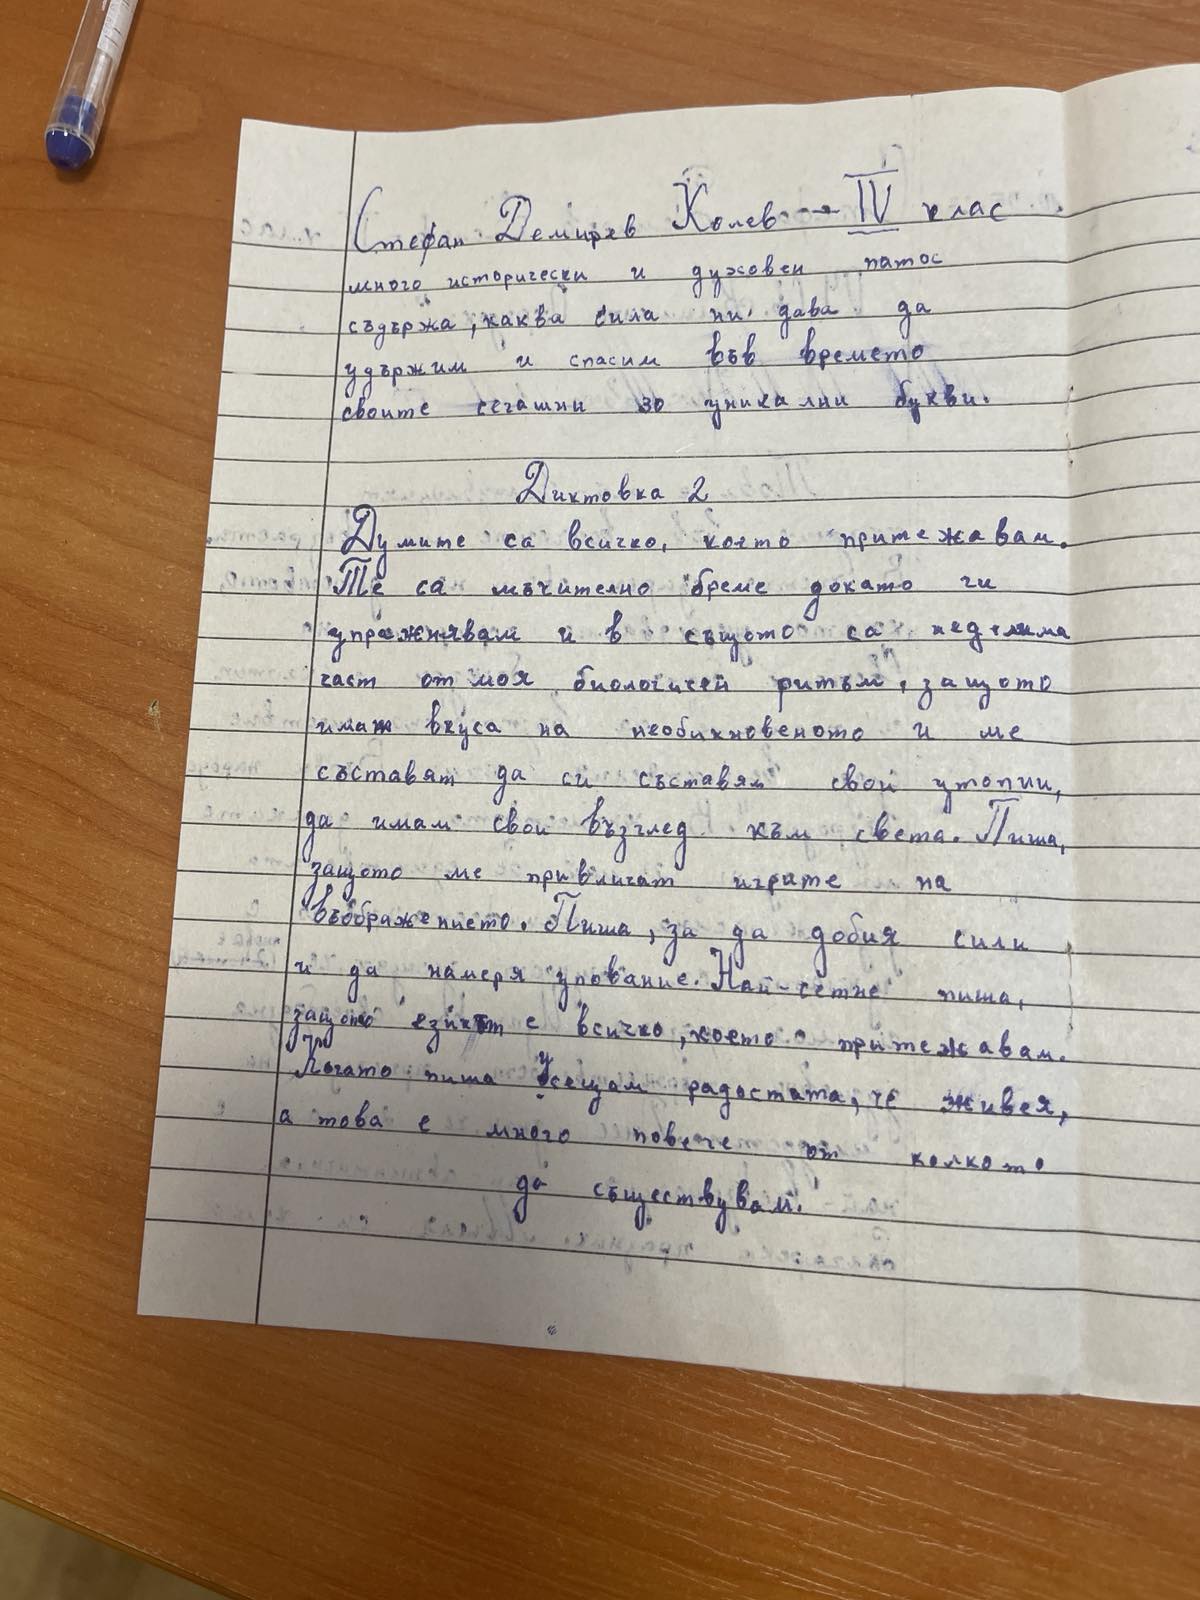 Стефан Демирев Колев → IV клас
много исторически и духовен патос
съдържа, каква сила ни дава да
удържим и спасим във времето
своите сегашни 30 уникални букви.
Диктовка 2
Думите са всичко, което притежавам.
Те са мъчително бреме докато ги
упражнявам и в същото са неделима
част от моя биологичей ритъм, защото
имат вкуса на необикновеното и ме
съставят да си съставям свои утопии,
да имам свои възглед към света. Пиша,
защото ме привличат игрите на
въображението. Пиша, за да добия сили
и да намеря упование. Най-сетне пиша,
защото езикът е всичко, което притежавам.
Когато пиша усещам радостта, че живея,
а това е много повече от колкото
да съществувам.